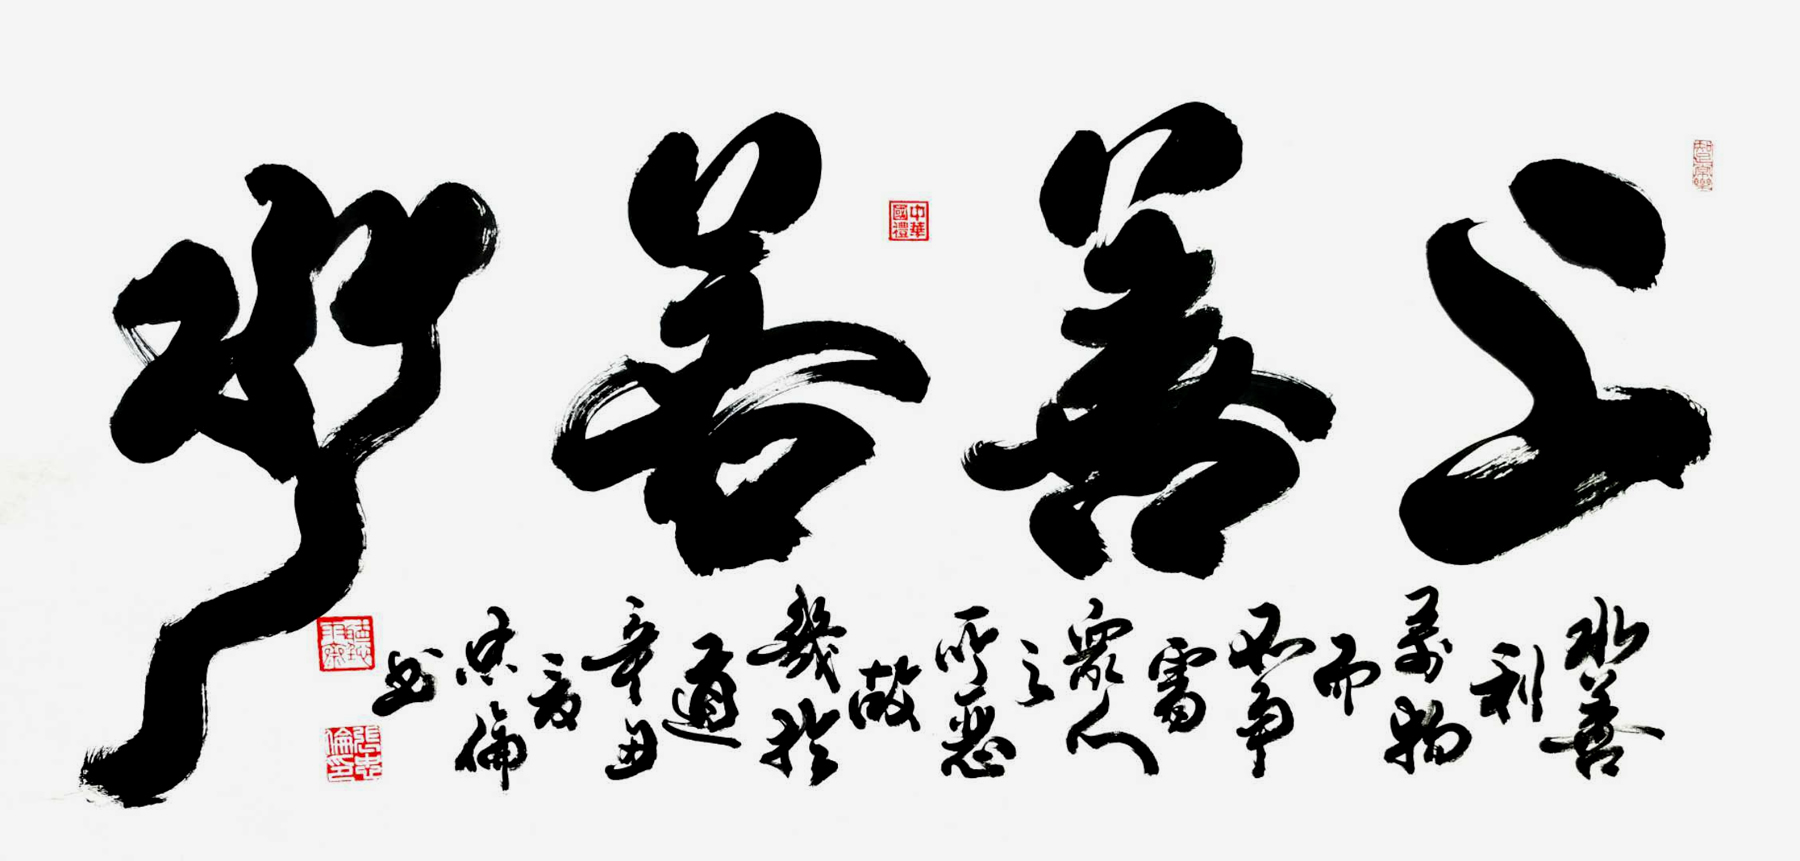 上善若水
水善
利
萬物
而
不争
處
眾人
之
所惡
故
幾於
道
辛丑
夏
忠倫
书
中華國禮
張忠倫印